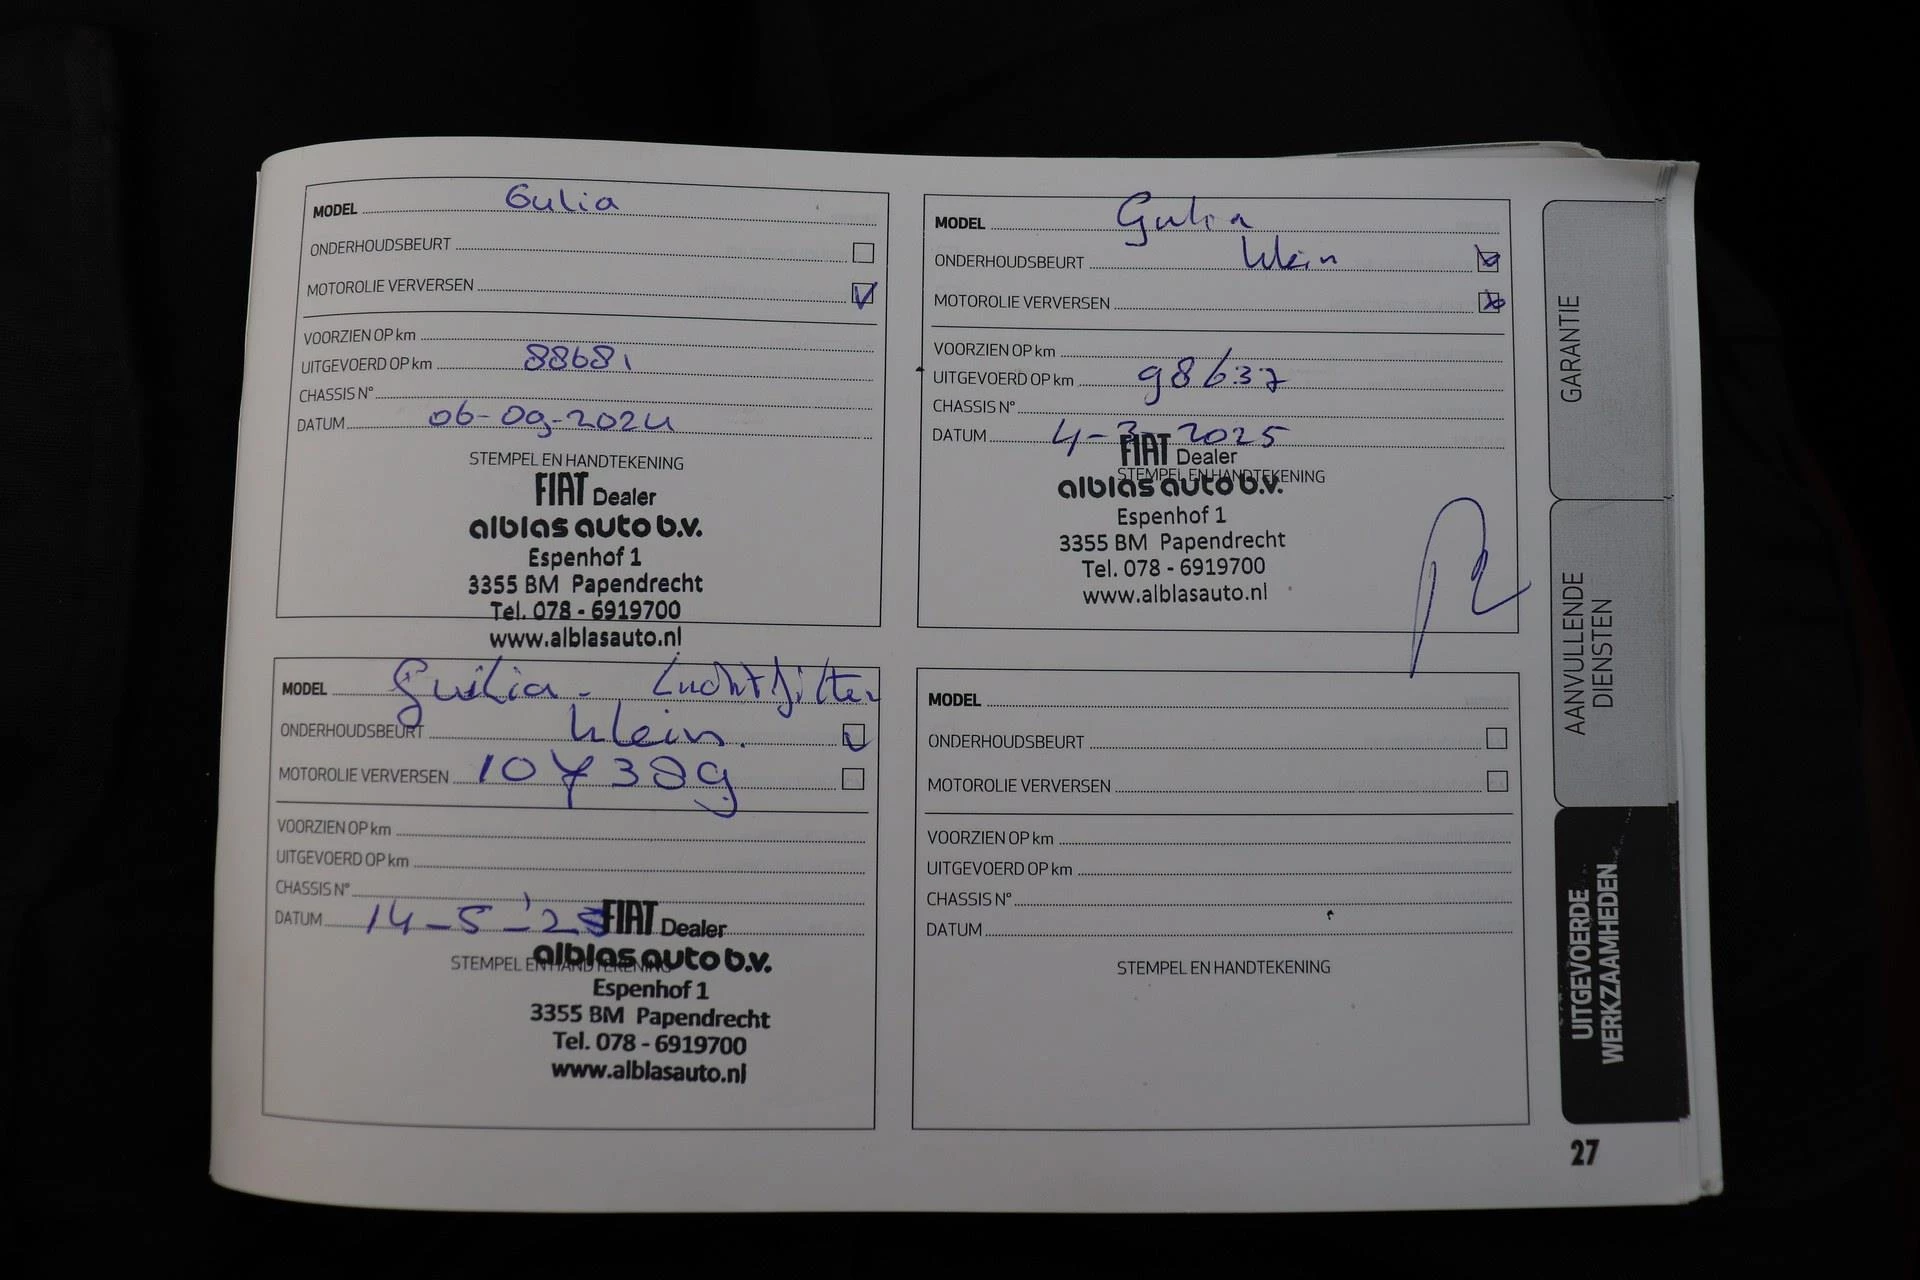 MODEL Gulia
ONDERHOUDSBEURT
MOTOROLIE VERVERSEN
VOORZIEN OP km
UITGEVOERD OP km 88681
CHASSIS N°
DATUM 06-09-2024
STEMPEL EN HANDTEKENING
FIAT Dealer
alblas auto b.v.
Espenhof 1
3355 BM Papendrecht
Tel. 078 - 6919700
www.alblasauto.nl
MODEL Gulia
ONDERHOUDSBEURT klein
MOTOROLIE VERVERSEN
VOORZIEN OP km
UITGEVOERD OP km 98637
CHASSIS N°
DATUM 4-3-2025
FIAT Dealer
STEMPEL EN HANDTEKENING
alblas auto b.v.
Espenhof 1
3355 BM Papendrecht
Tel. 078 - 6919700
www.alblasauto.nl
MODEL Guilia - Luchtfilter
ONDERHOUDSBEURT klein.
MOTOROLIE VERVERSEN 107389
VOORZIEN OP km
UITGEVOERD OP km
CHASSIS N°
DATUM 14-5-'25
FIAT Dealer
STEMPEL EN HANDTEKENING
alblas auto b.v.
Espenhof 1
3355 BM Papendrecht
Tel. 078 - 6919700
www.alblasauto.nl
MODEL
ONDERHOUDSBEURT
MOTOROLIE VERVERSEN
VOORZIEN OP km
UITGEVOERD OP km
CHASSIS N°
DATUM
STEMPEL EN HANDTEKENING
GARANTIE
AANVULLENDE
DIENSTEN
UITGEVOERDE
WERKZAAMHEDEN
27